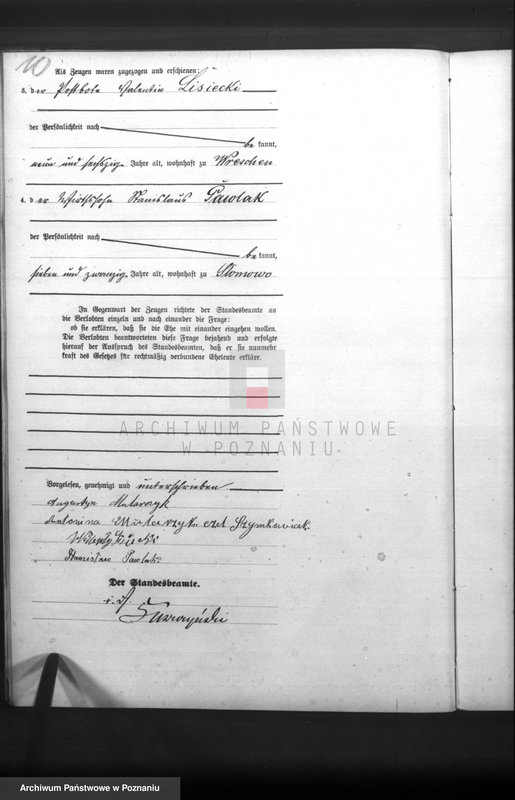 10
Als Zeugen waren zugezogen und erschienen:
3. der Postbote Valentin Lisiecki
der Persönlichkeit nach
be kannt,
neun und sechszig Jahre alt, wohnhaft zu Wreschen
4. der Wirthssohn Stanislaus Pawlak
der Persönlichkeit nach
be kannt,
sieben und zwanzig Jahre alt, wohnhaft zu
In Gegenwart der Zeugen richtete der Standesbeamte an
die Verlobten einzeln und nach einander die Frage:
ob sie erklären, daß sie die Ehe mit einander eingehen wollen.
Die Verlobten beantworteten diese Frage bejahend und erfolgte
hierauf der Ausspruch des Standesbeamten, daß er sie nunmehr
kraft des Gesetzes für rechtmäßig verbundene Eheleute erkläre.
ARCHIWUM PAŃSTWOWE
W POZNANIU
Vorgelesen, genehmigt und unterschrieben
Augustyn Matarzyk
Antonina geb Szymkowiak.
Stanisław Pawlak
Der Standesbeamte.
i. V.
Archiwum Państwowe w Poznaniu